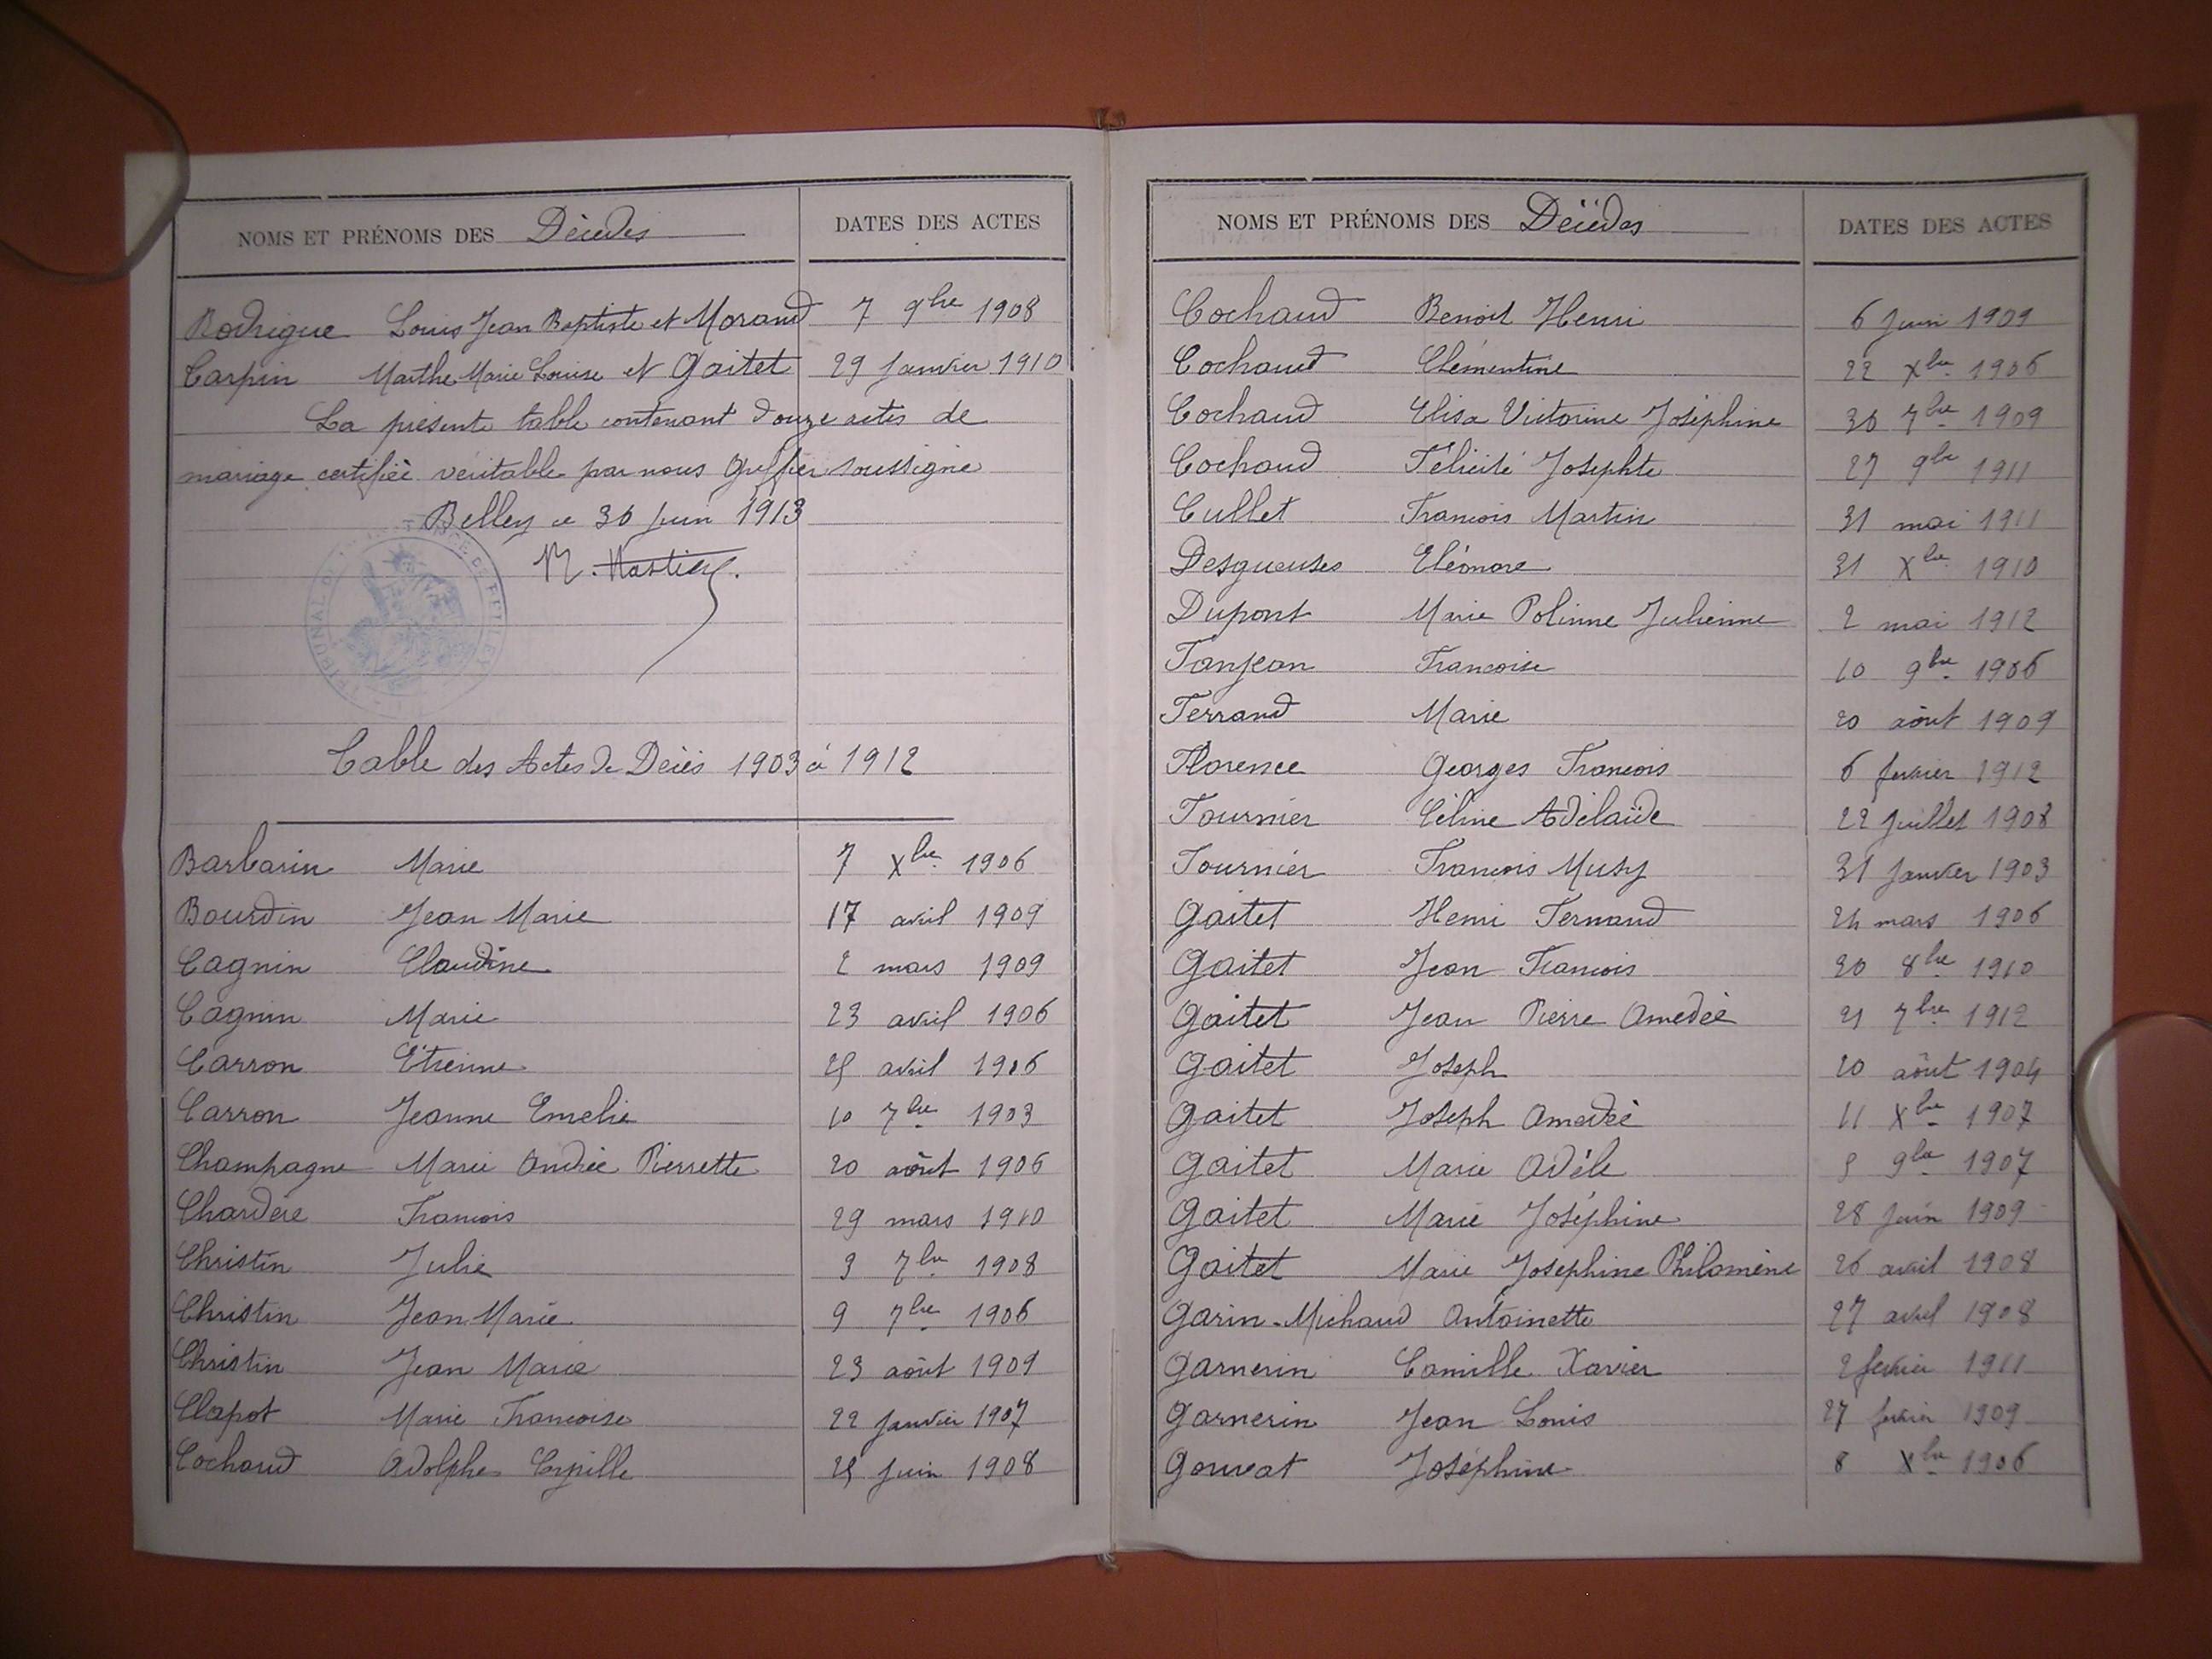 NOMS ET PRÉNOMS DES Décédés DATES DES ACTES
Rodrigue Louis Jean Baptiste et Morand 7 9bre 1908
Carpin Marthe Marie Louise et Gaitet 29 Janvier 1910
La présente table contenant douze actes de
mariage certifiée véritable par nous Greffier soussigné
Belley ce 30 Juin 1913
Table des Actes de Décès 1903 à 1912
Barbarin Marie 7 Xbre 1906
Bourdin Jean Marie 17 avril 1909
Cagnin Claudine 2 mars 1909
Cagnin Marie 23 avril 1906
Carron Etienne 25 avril 1906
Carron Jeanne Emelie 10 7bre 1903
Champagne Marie Andrée Pierrette 20 août 1906
Chardère Francois 29 mars 1910
Christin Julie 3 7bre 1908
Christin Jean Marie 9 7bre 1906
Christin Jean Marie 23 août 1909
Clapot Marie Francoise 22 Janvier 1907
Cochaud Adolphe 25 Juin 1908
NOMS ET PRÉNOMS DES Décédés DATES DES ACTES
Cochaud Benoit Henri 6 Juin 1909
Cochaud Clémentine 22 Xbre 1906
Cochaud Elisa Victorine Joséphine 30 7bre 1909
Cochaud Félicité Josephte 27 9bre 1911
Cullet Francois Martin 31 mai 1911
Desgueuses Eléonore 31 Xbre 1910
Dupont Marie Polinne Julienne 2 mai 1912
Fanjean Francoise 10 9bre 1906
Ferrand Marie 20 août 1909
Florence Georges Francois 6 fevrier 1912
Fournier Céline Adélaïde 22 Juillet 1908
Fournier Francois Musy 31 Janvier 1903
Gaitet Henri Fernand 24 mars 1906
Gaitet Jean Francois 20 8bre 1910
Gaitet Jean Pierre Amedée 21 7bre 1912
Gaitet Joseph 20 août 1904
Gaitet Joseph Amedée 11 Xbre 1907
Gaitet Marie Adèle 5 9bre 1907
Gaitet Marie Joséphine 28 Juin 1909
Gaitet Marie Josephine Philomène 26 avril 1908
Garin-Michaud Antoinette 27 avril 1908
Garnerin Camille Xavier 2 fevrier 1911
Garnerin Jean Louis 27 fevrier 1909
Gouvat Joséphine 8 Xbre 1906